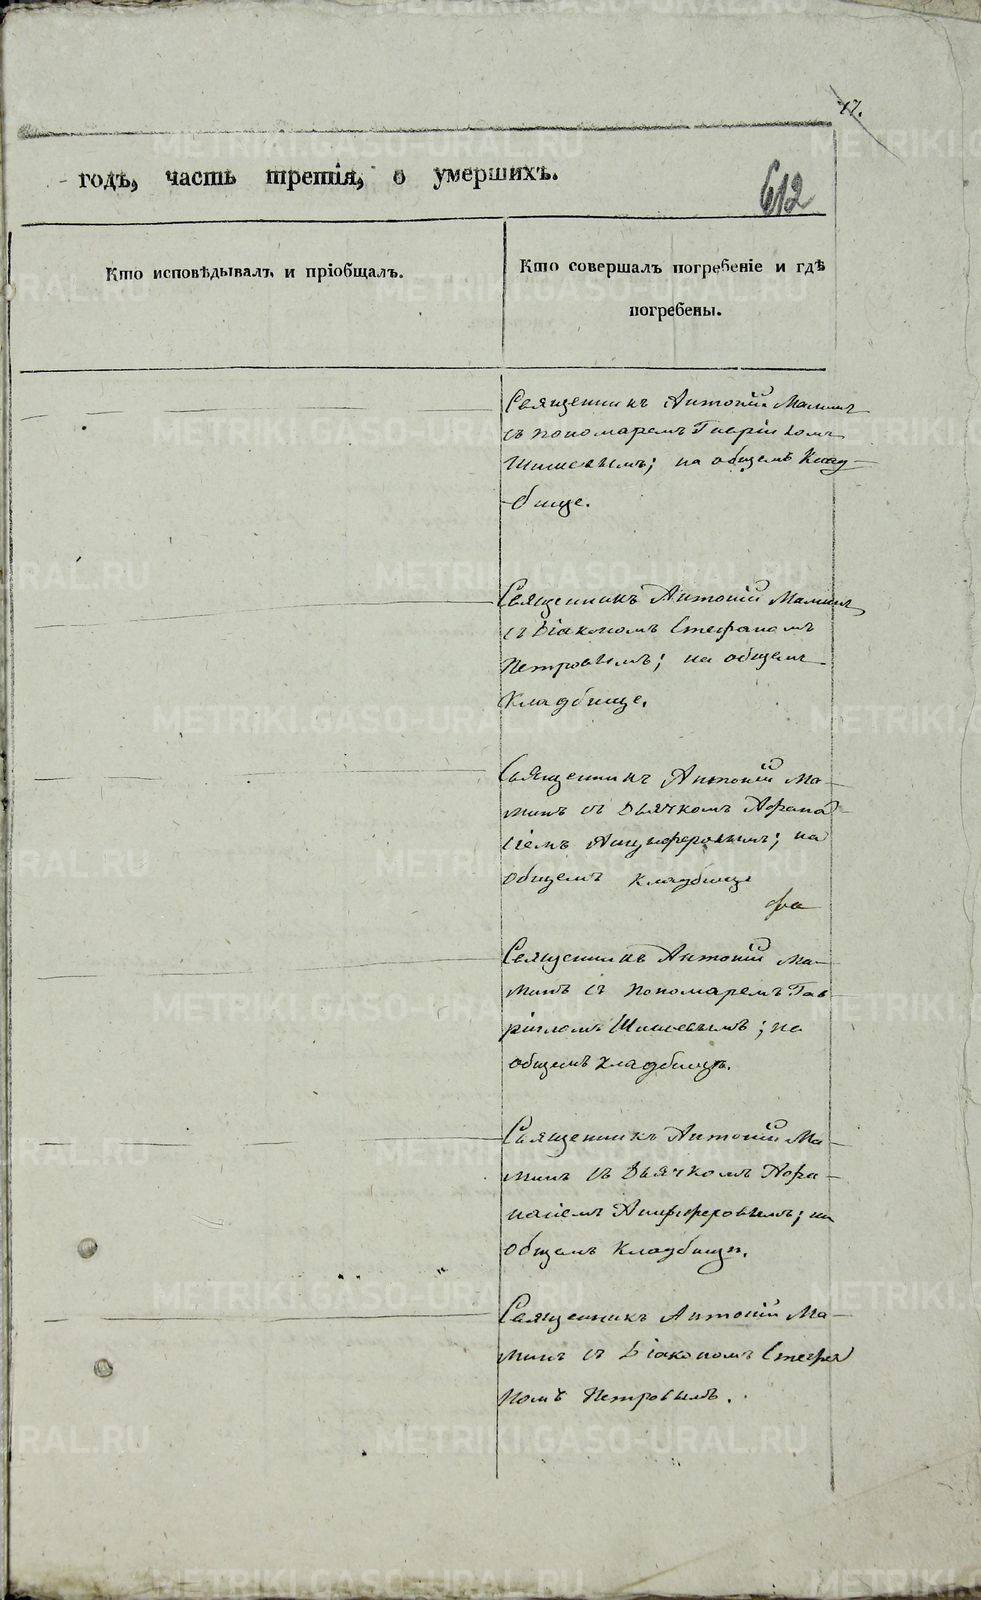 17.
годъ, часть третія, о умершихъ.
612
Кто исповѣдывалъ и пріобщалъ.
Кто совершалъ погребеніе и гдѣ
погребены.
Священникъ Антоній Маминъ
съ пономаремъ Гавріиломъ
Шишевымъ; на общемъ Клад-
бище.
Священникъ Антоній Маминъ
съ Діакономъ Стефаномъ
Петровымъ; на общемъ
Кладбище.
Священникъ Антоній Ма-
минъ съ Дьячкомъ Афана-
сіемъ Анциферовымъ; на
общемъ кладбище
Священникъ Антоній Ма-
минъ съ пономаремъ Гав-
ріиломъ Шишевымъ; на
общемъ кладбищѣ.
Священникъ Антоній Ма-
минъ съ Дьячкомъ Афа-
насіемъ Анциферовымъ; на
общемъ Кладбищѣ.
Священникъ Антоній Ма-
минъ съ Діакономъ Стефа
номъ Петровымъ.
METRIKI.GASO-URAL.RU